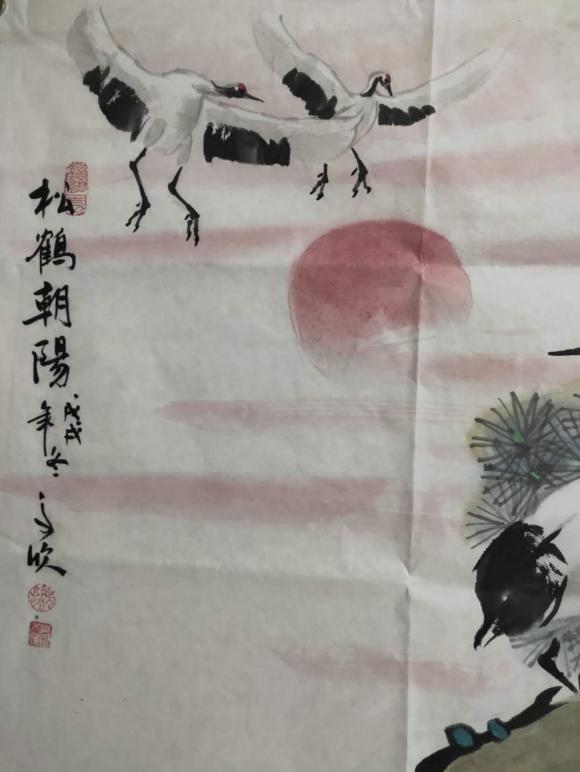 松鶴朝陽
戊戌
年冬